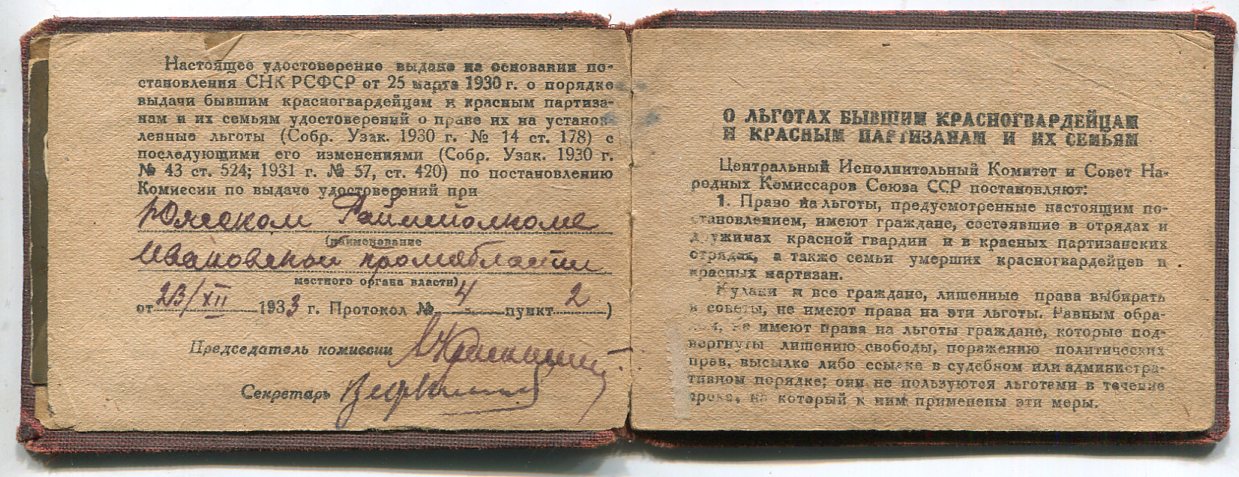 Настоящее удостоверение выдано на основании по-
становления СНК РСФСР от 25 марта 1930 г. о порядке
выдачи бывшим красногвардейцам и красным партиза-
нам и их семьям удостоверений о праве их на установ-
ленные льготы (Собр. Узак. 1930 г. № 14 ст. 178) с
последующими его изменениями (Собр. Узак. 1930 г.
№ 43 ст. 524; 1931 г. № 57, ст. 420) по постановлению
Комиссии по выдаче удостоверений при
Южском Райисполкоме
(наименование
Ивановской промобласти
местного органа власти)
от 23/XII 1933 г. Протокол № 4 пункт 2)
Председатель комиссии
Секретарь
О ЛЬГОТАХ БЫВШИМ КРАСНОГВАРДЕЙЦАМ
И КРАСНЫМ ПАРТИЗАНАМ И ИХ СЕМЬЯМ
Центральный Исполнительный Комитет и Совет На-
родных Комиссаров Союза ССР постановляют:
1. Право на льготы, предусмотренные настоящим по-
становлением, имеют граждане, состоявшие в отрядах и
дружинах красной гвардии и в красных партизанских
отрядах, а также семьи умерших красногвардейцев и
красных партизан.
Кулаки и все граждане, лишенные права выбирать
в советы, не имеют права на эти льготы. Равным обра-
зом, не имеют права на льготы граждане, которые под-
вергнуты лишению свободы, поражению политических
прав, высылке либо ссылке в судебном или администра-
тивном порядке; они не пользуются льготами в течение
срока, на который к ним применены эти меры.